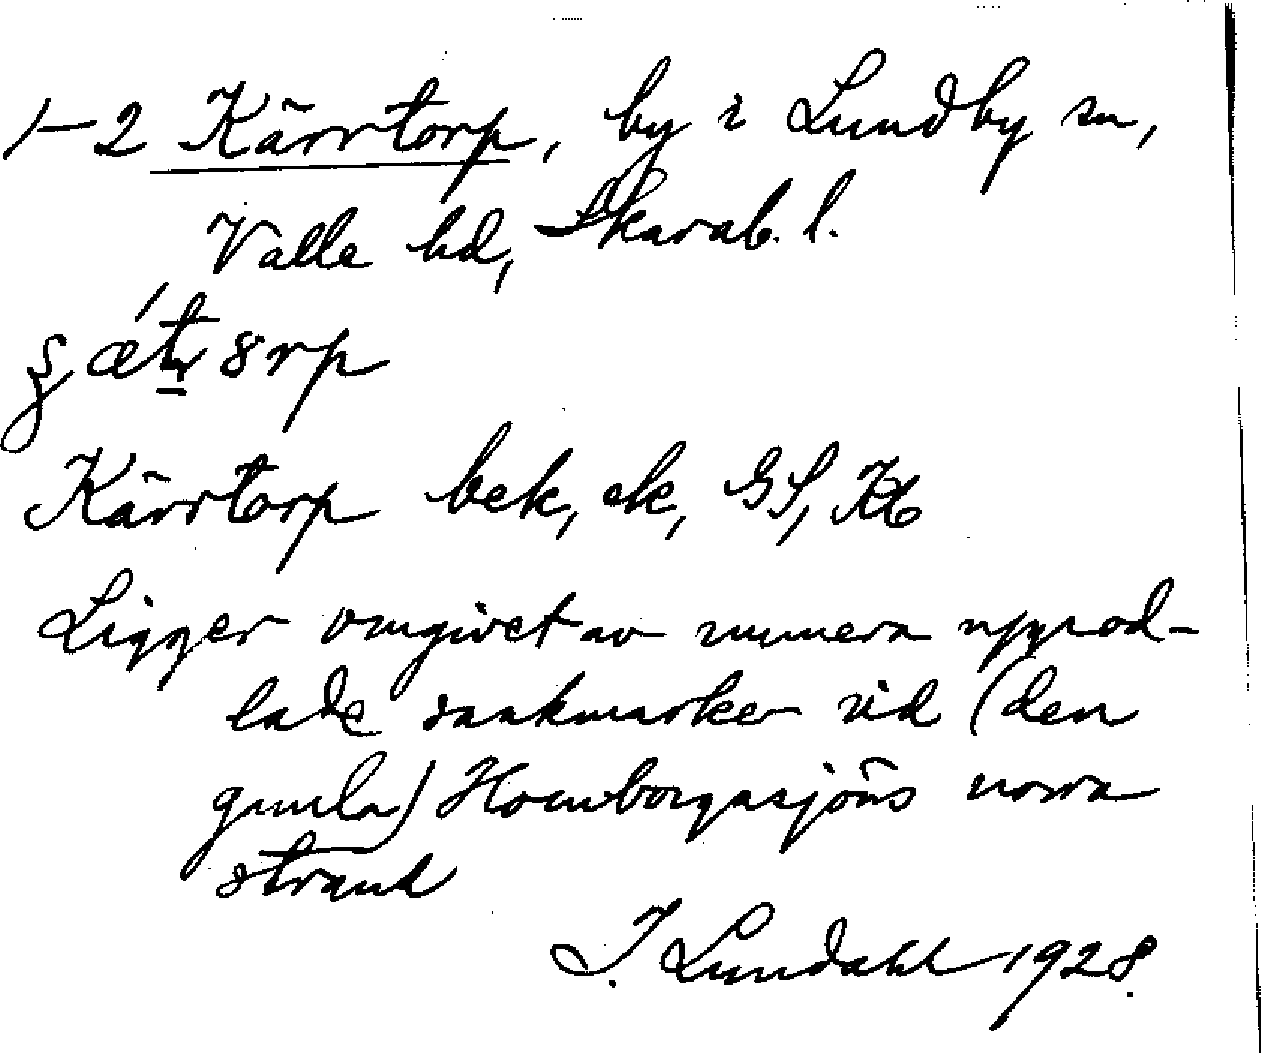 1–2 Kärrtorp, by i Lundby sn,
Valle hd, Skarab. l.
Kärrtorp bek, ek, GS, Kb
Ligger omgivet av numera uppod-
lade sankmarker vid (den
gamla) Hornborgasjöns norra
strand
I. Lundahl 1928.